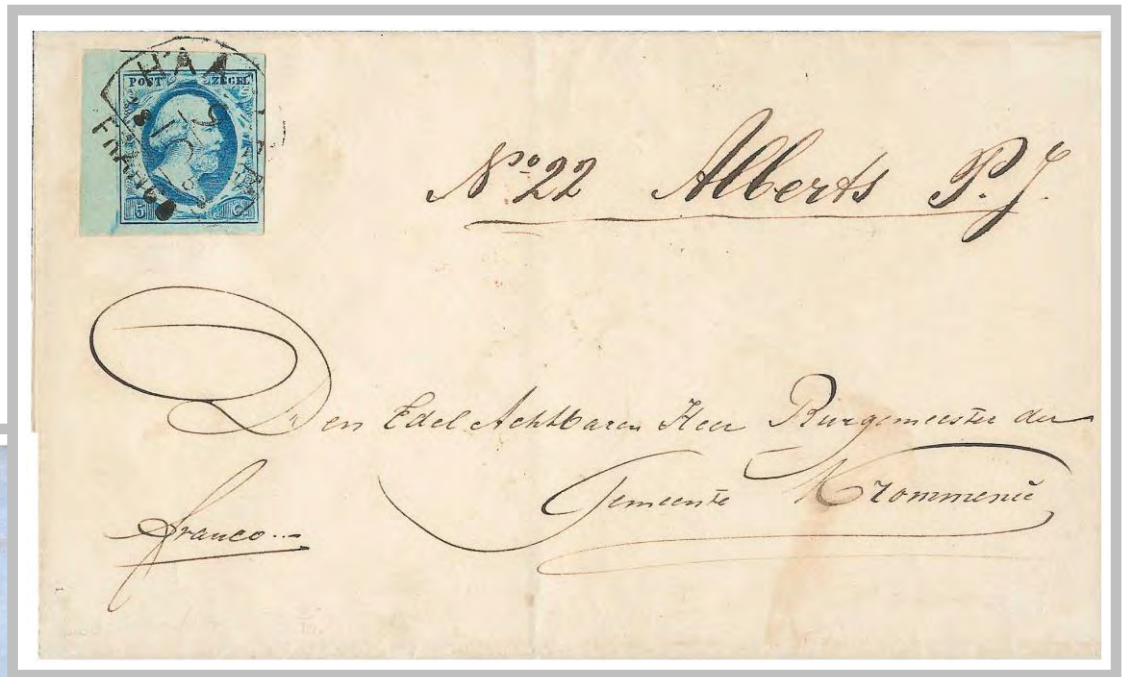 POST ZEGEL
HAARLEM
FRANCO
5 C
No. 22 Alberts P.J.
Den Edel Achtbaren Heer Burgemeester der
Gemeente Krommenie
franco...